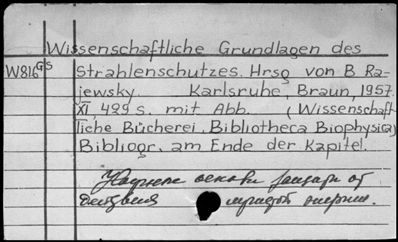 Wissenschaftliche Grundlagen des
W816 GS Strahlenschutzes. Hrsg von B Ra-
jewsky Karlsruhe, Braun, 1957.
XI, 429 s. mit Abb. (Wissenschaft-
liche Bücherei. Bibliotheca Biophysica)
Bibliogr. am Ende der Kapitel.
Научные основы защиты от